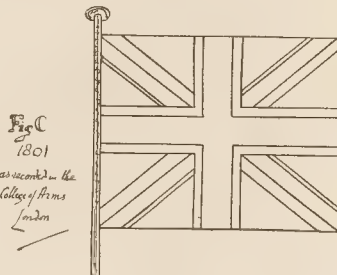 Fig C
1801
as recorded in the
College of Arms
London